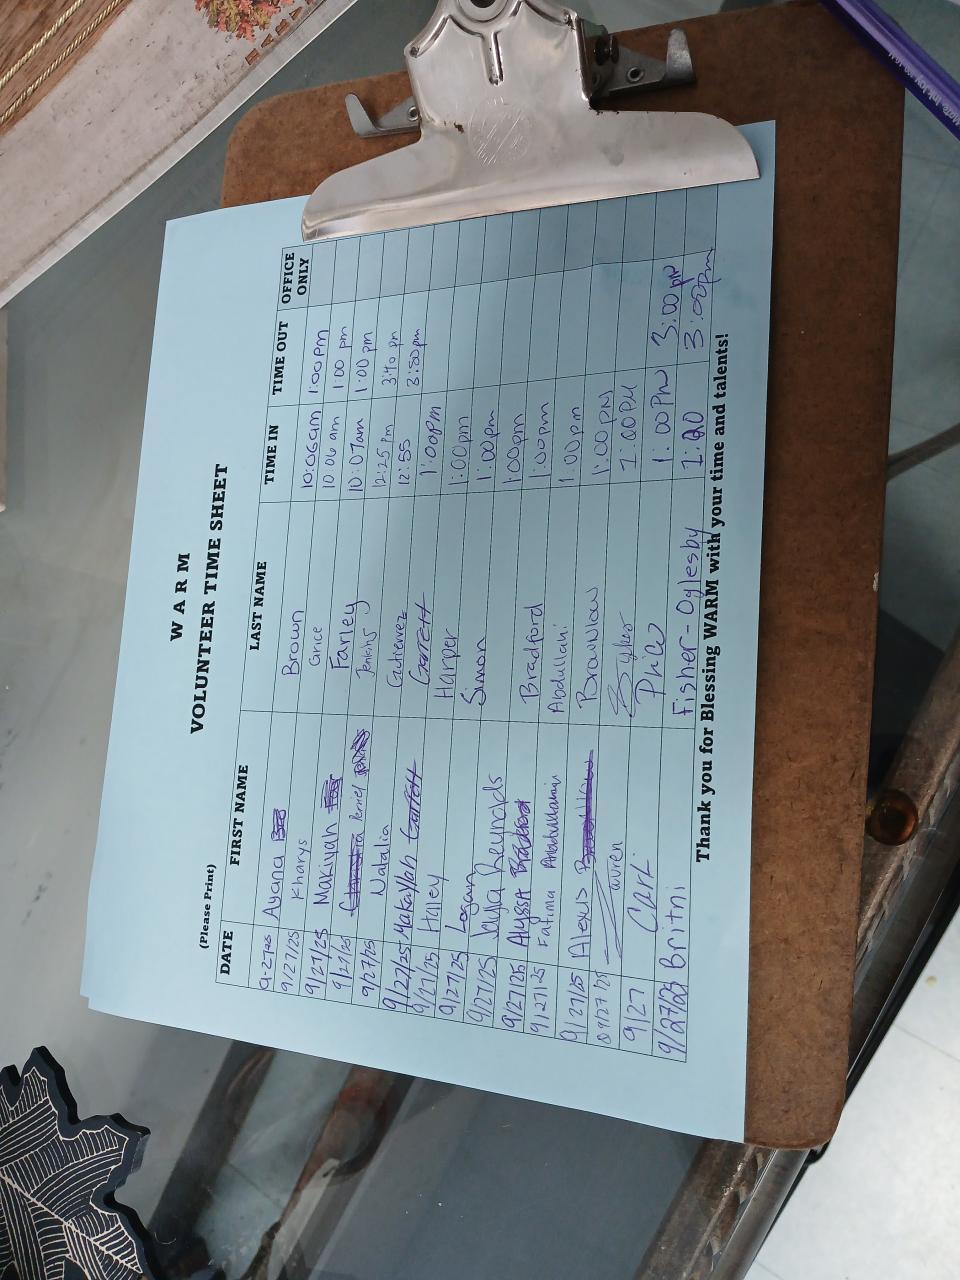 WARM
VOLUNTEER TIME SHEET
(Please Print)
DATE FIRST NAME LAST NAME TIME IN TIME OUT OFFICE ONLY
9-27-25 Ayana Brown 10:06am 1:00pm
9/27/25 Kharys Grice 10 06 am 1:00 pm
9/27/25 Makiyah Farley 10:07am 1:00 pm
9/27/25 Perriel Jenkins 12:25 pm 3:40 pm
9/27/25 Natalia Gutierrez 12:55 3:50pm
9/27/25 Makayllah Garrett Garrett 1:00pm
9/27/25 Halley Harper 1:00pm
9/27/25 Logan Simon 1:00pm
9/27/25 Jayla Reynolds 1:00pm
9/27/25 Alyssa Bradford Bradford 1:00pm
9/27/25 Fatima Abdullahi 1:00pm
9/27/25 Alexus Brawnlow 1:00 PM
09/27/25 Lauren 1:00PM
9/27 Carl Price 1:00PM 3:00 PM
9/27/25 Britni Fisher-Oglesby 1:00 3:00pm
Thank you for Blessing WARM with your time and talents!